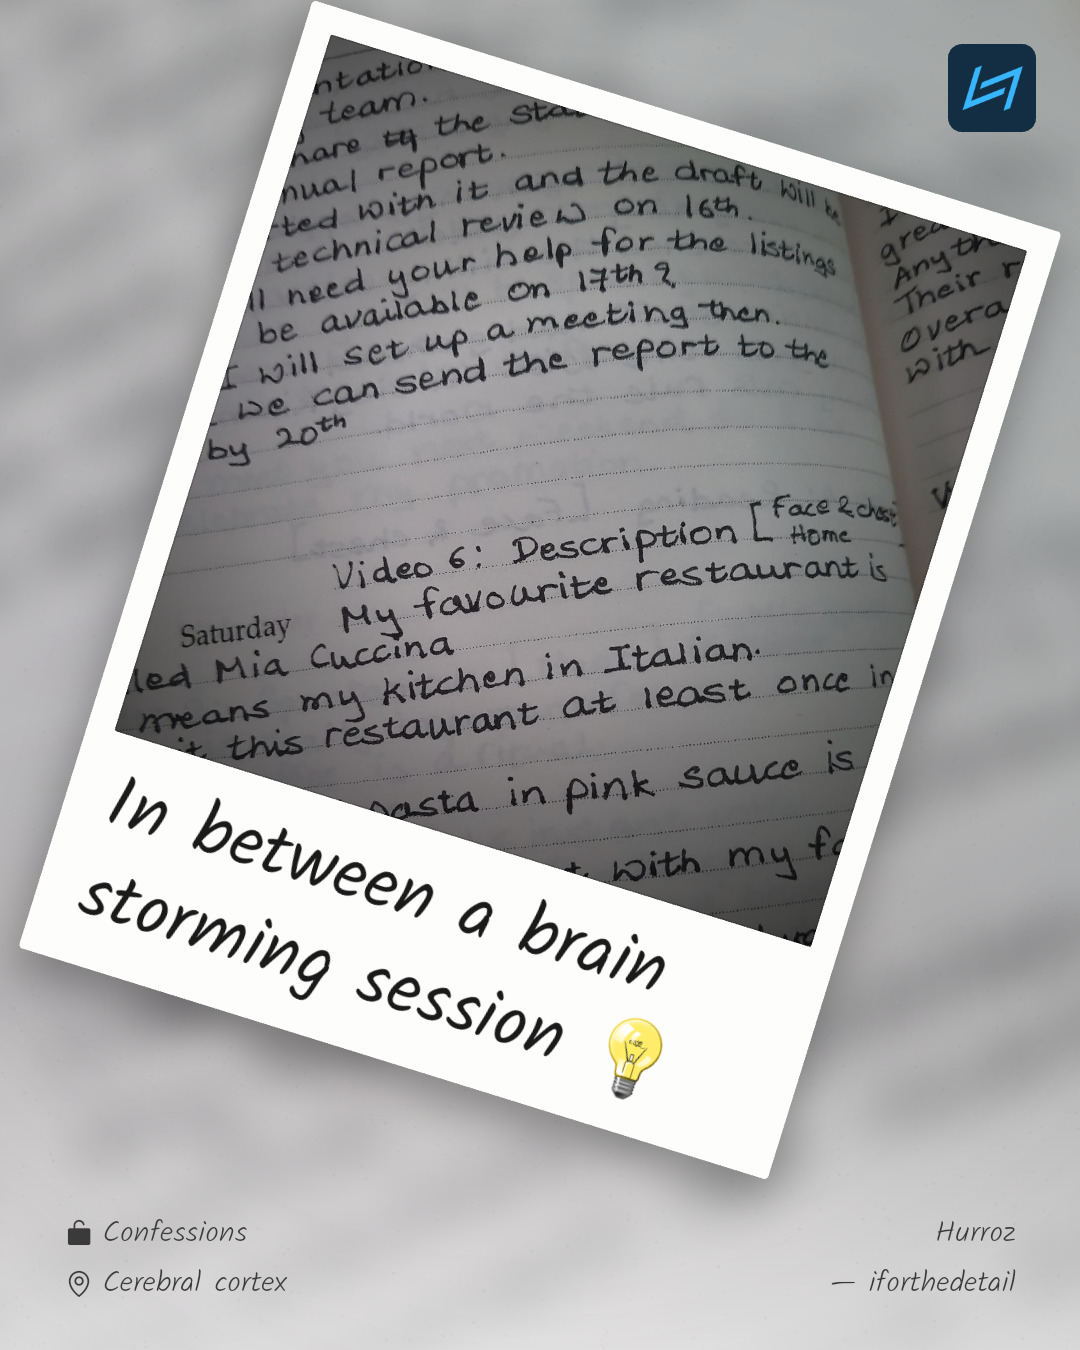 team.
the
nual report.
ted with it and the draft will be
technical review on 16th.
ll need your help for the listings
be available on 17th?
I will set up a meeting then.
we can send the report to the
by 20th
Video 6: Description [Face & chest
Home
My favourite restaurant is
Saturday
led Mia Cuccina
means my kitchen in Italian.
it this restaurant at least once in
pasta in pink sauce is
with my
Any
Their
with
In between a brain
storming session 💡
Confessions
Cerebral cortex
Hurroz
— iforthedetail